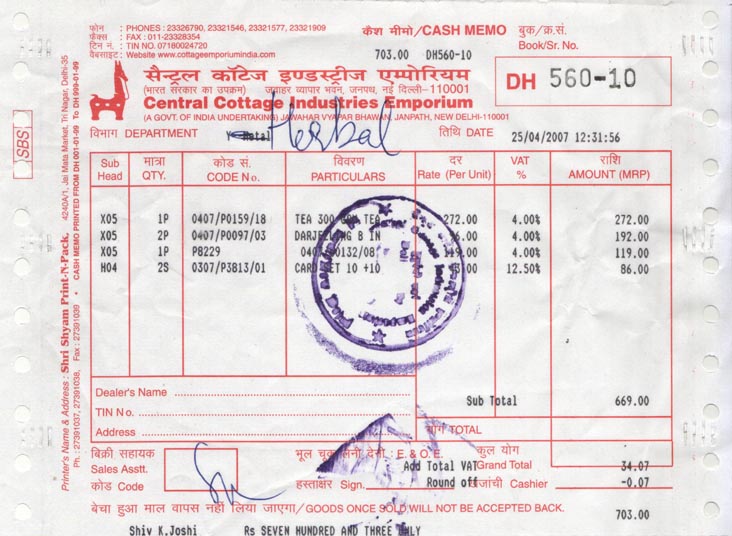 फोन : PHONES : 23326790, 23321546, 23321577, 23321909
फैक्स : FAX : 011-23328354
टिन न. : TIN NO. 07180024720
वेबसाइट : Website www.cottageemporiumindia.com
कैश मीमो/CASH MEMO
बुक/क्र.सं.
Book/Sr. No.
703.00 DH560-10
DH 560-10
सैन्ट्रल कॉटेज इण्डस्ट्रीज एम्पोरियम
(भारत सरकार का उपक्रम) जवाहर व्यापार भवन, जनपथ, नई दिल्ली-110001
Central Cottage Industries Emporium
(A GOVT. OF INDIA UNDERTAKING) JAWAHAR VYAPAR BHAWAN, JANPATH, NEW DELHI-110001
विभाग DEPARTMENT Herbal तिथि DATE 25/04/2007 12:31:56
Sub Head मात्रा QTY. कोड सं. CODE No. विवरण PARTICULARS दर Rate (Per Unit) VAT % राशि AMOUNT (MRP)
X05 1P 0407/P0159/18 TEA 300 TEA 272.00 4.00% 272.00
X05 2P 0407/P0097/03 DARJEELING B IN 4.00% 192.00
X05 1P P8229 119.00 4.00% 119.00
H04 2S 0307/P3813/01 CARD SET 10 +10 12.50% 86.00
Dealer's Name
TIN No.
Address
Sub Total 669.00
योग TOTAL
बिक्री सहायक
Sales Asstt.
कोड Code
भूल चूक लेनी देनी : E. & O.E.
हस्ताक्षर Sign.
कुल योग
Add Total VAT Grand Total 34.07
Round off जांची Cashier -0.07
बेचा हुआ माल वापस नहीं लिया जाएगा/GOODS ONCE SOLD WILL NOT BE ACCEPTED BACK.
703.00
Shiv K.Joshi Rs SEVEN HUNDRED AND THREE ONLY
SBS
Printer's Name & Address : Shri Shyam Print-N-Pack, 4240A/1, Jai Mata Market, Tri Nagar, Delhi-35
Ph. : 27391037, 27391038, Fax : 27391039 • CASH MEMO PRINTED FROM DH 001-01-99 To DH 999-01-99